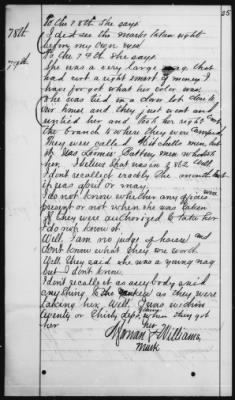 25
To the 78th She says
78th I did see the mules taken right before my own eyes
79th To the 79th She says
She was a very large mag. that
had not a right smart of money I
have forgot what her color was
She was tied in a clover lot close to
our house and they just went and
untied her and took her right over
the branch to where they were camped
They were called Mitchells men, but
it was Loomis' Battery men who took
her. I believe that was in 1862. Well
I dont recollect exactly the month but
it was april or may.
I do not know whether any officers were
present or not when she was taken
If they were authorized to take her
I do not know it.
Well, I am no judge of horses and
dont know what they are worth
Well they said she was a young nag
but I dont know.
I dont recollect as any body said
anything to the yankees as they were
taking her, Well, I was within
twenty or thirty steps when they got
her
her
Williams
mark